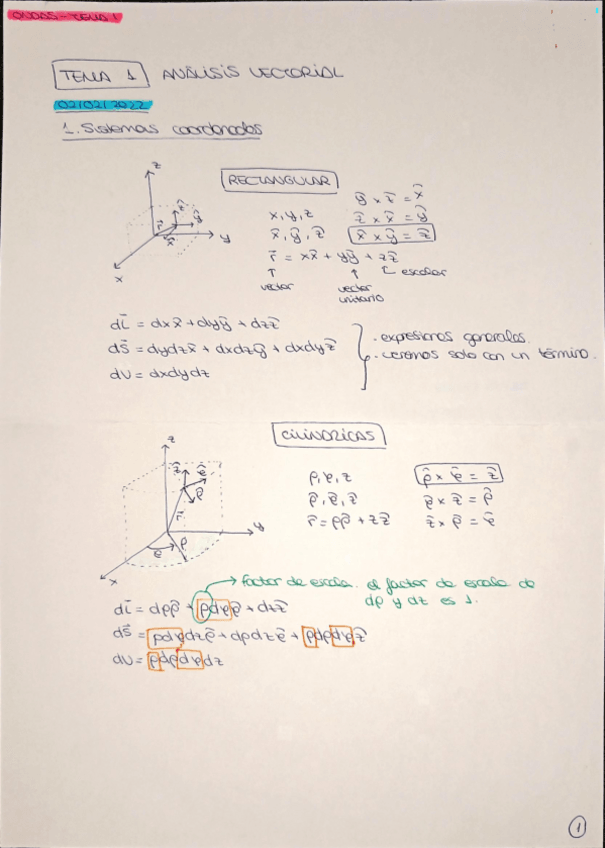 ONDAS - TEMA 1
TEMA 1 ANÁLISIS VECTORIAL
02/02/2022
1. Sistemas coordenados
z
y
x
r̄
x̂
ŷ
ẑ
RECTANGULAR
x, y, z
x̂, ŷ, ẑ
r̄ = xx̂ + yŷ + zẑ
vector
vector unitario
escalar
ŷ × ẑ = x̂
ẑ × x̂ = ŷ
x̂ × ŷ = ẑ
dl̄ = dxx̂ + dyŷ + dzẑ
ds̄ = dydzx̂ + dxdzŷ + dxdyẑ
dv = dxdydz
· expresiones generales.
· veremos solo con un término.
CILINDRICAS
z
y
x
r̄
ẑ
φ̂
ρ̂
φ
ρ
ρ, φ, z
ρ̂, φ̂, ẑ
r̄ = ρρ̂ + zẑ
ρ̂ × φ̂ = ẑ
φ̂ × ẑ = ρ̂
ẑ × ρ̂ = φ̂
factor de escala. el factor de escala de
dρ y dz es 1.
dl̄ = dρρ̂ + ρdφφ̂ + dzẑ
ds̄ = ρdφdzρ̂ + dρdzφ̂ + ρdρdφẑ
dv = ρdρdφdz
1